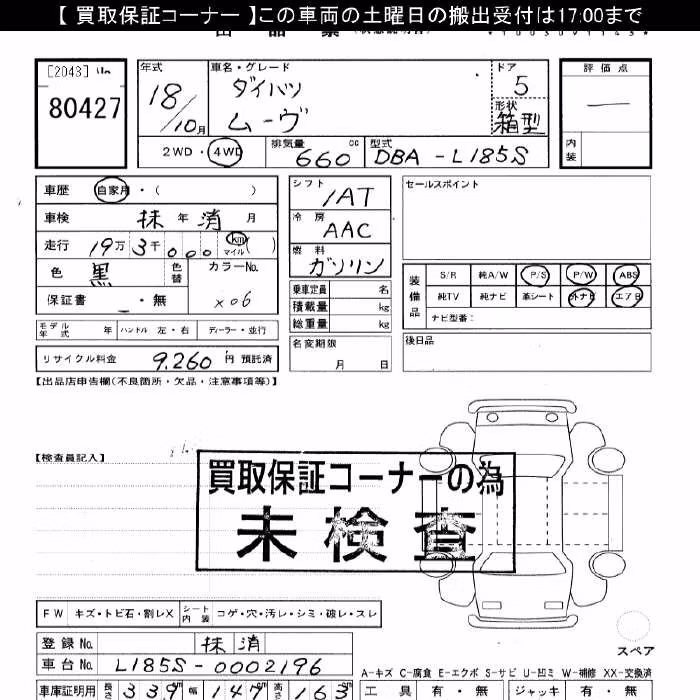 【 買取保証コーナー 】この車両の土曜日の搬出受付は17:00まで
[2043]
80427
年式 18/10月
車名・グレード ダイハツ ムーヴ
ドア 5
形状 箱型
評価点 —
内装
2WD・4WD
排気量 660 cc
型式 DBA-L185S
車歴 自家用・( )
車検 抹年消月
走行 19万3千000 km マイル( )
色 黒 色替 カラーNo. X06
保証書 ・無
モデル年式 年 ハンドル 左・右 ディーラー・並行
リサイクル料金 9,260円 預託済
シフト IAT
冷房 AAC
燃料 ガソリン
乗車定員 名
積載量 kg
総重量 kg
名変期限 月 日
セールスポイント
装備品 S/R 純A/W P/S P/W ABS
純TV 純ナビ 革シート 外ナビ エアB
ナビ型番:
後日品
【出品店申告欄(不良箇所・欠品・注意事項等)】
【検査員記入】
買取保証コーナーの為
未検査
FW キズ・トビ石・割レX シート内装 コゲ・穴・汚レ・シミ・破レ・スレ
登録No. 抹消
車台No. L185S-0002196
車庫証明用 長さ 339 幅 147 高さ 163
スペア
A-キズ C-腐食 E-エクボ S-サビ U-凹ミ W-補修 XX-交換済
工具 有・無 ジャッキ 有・無